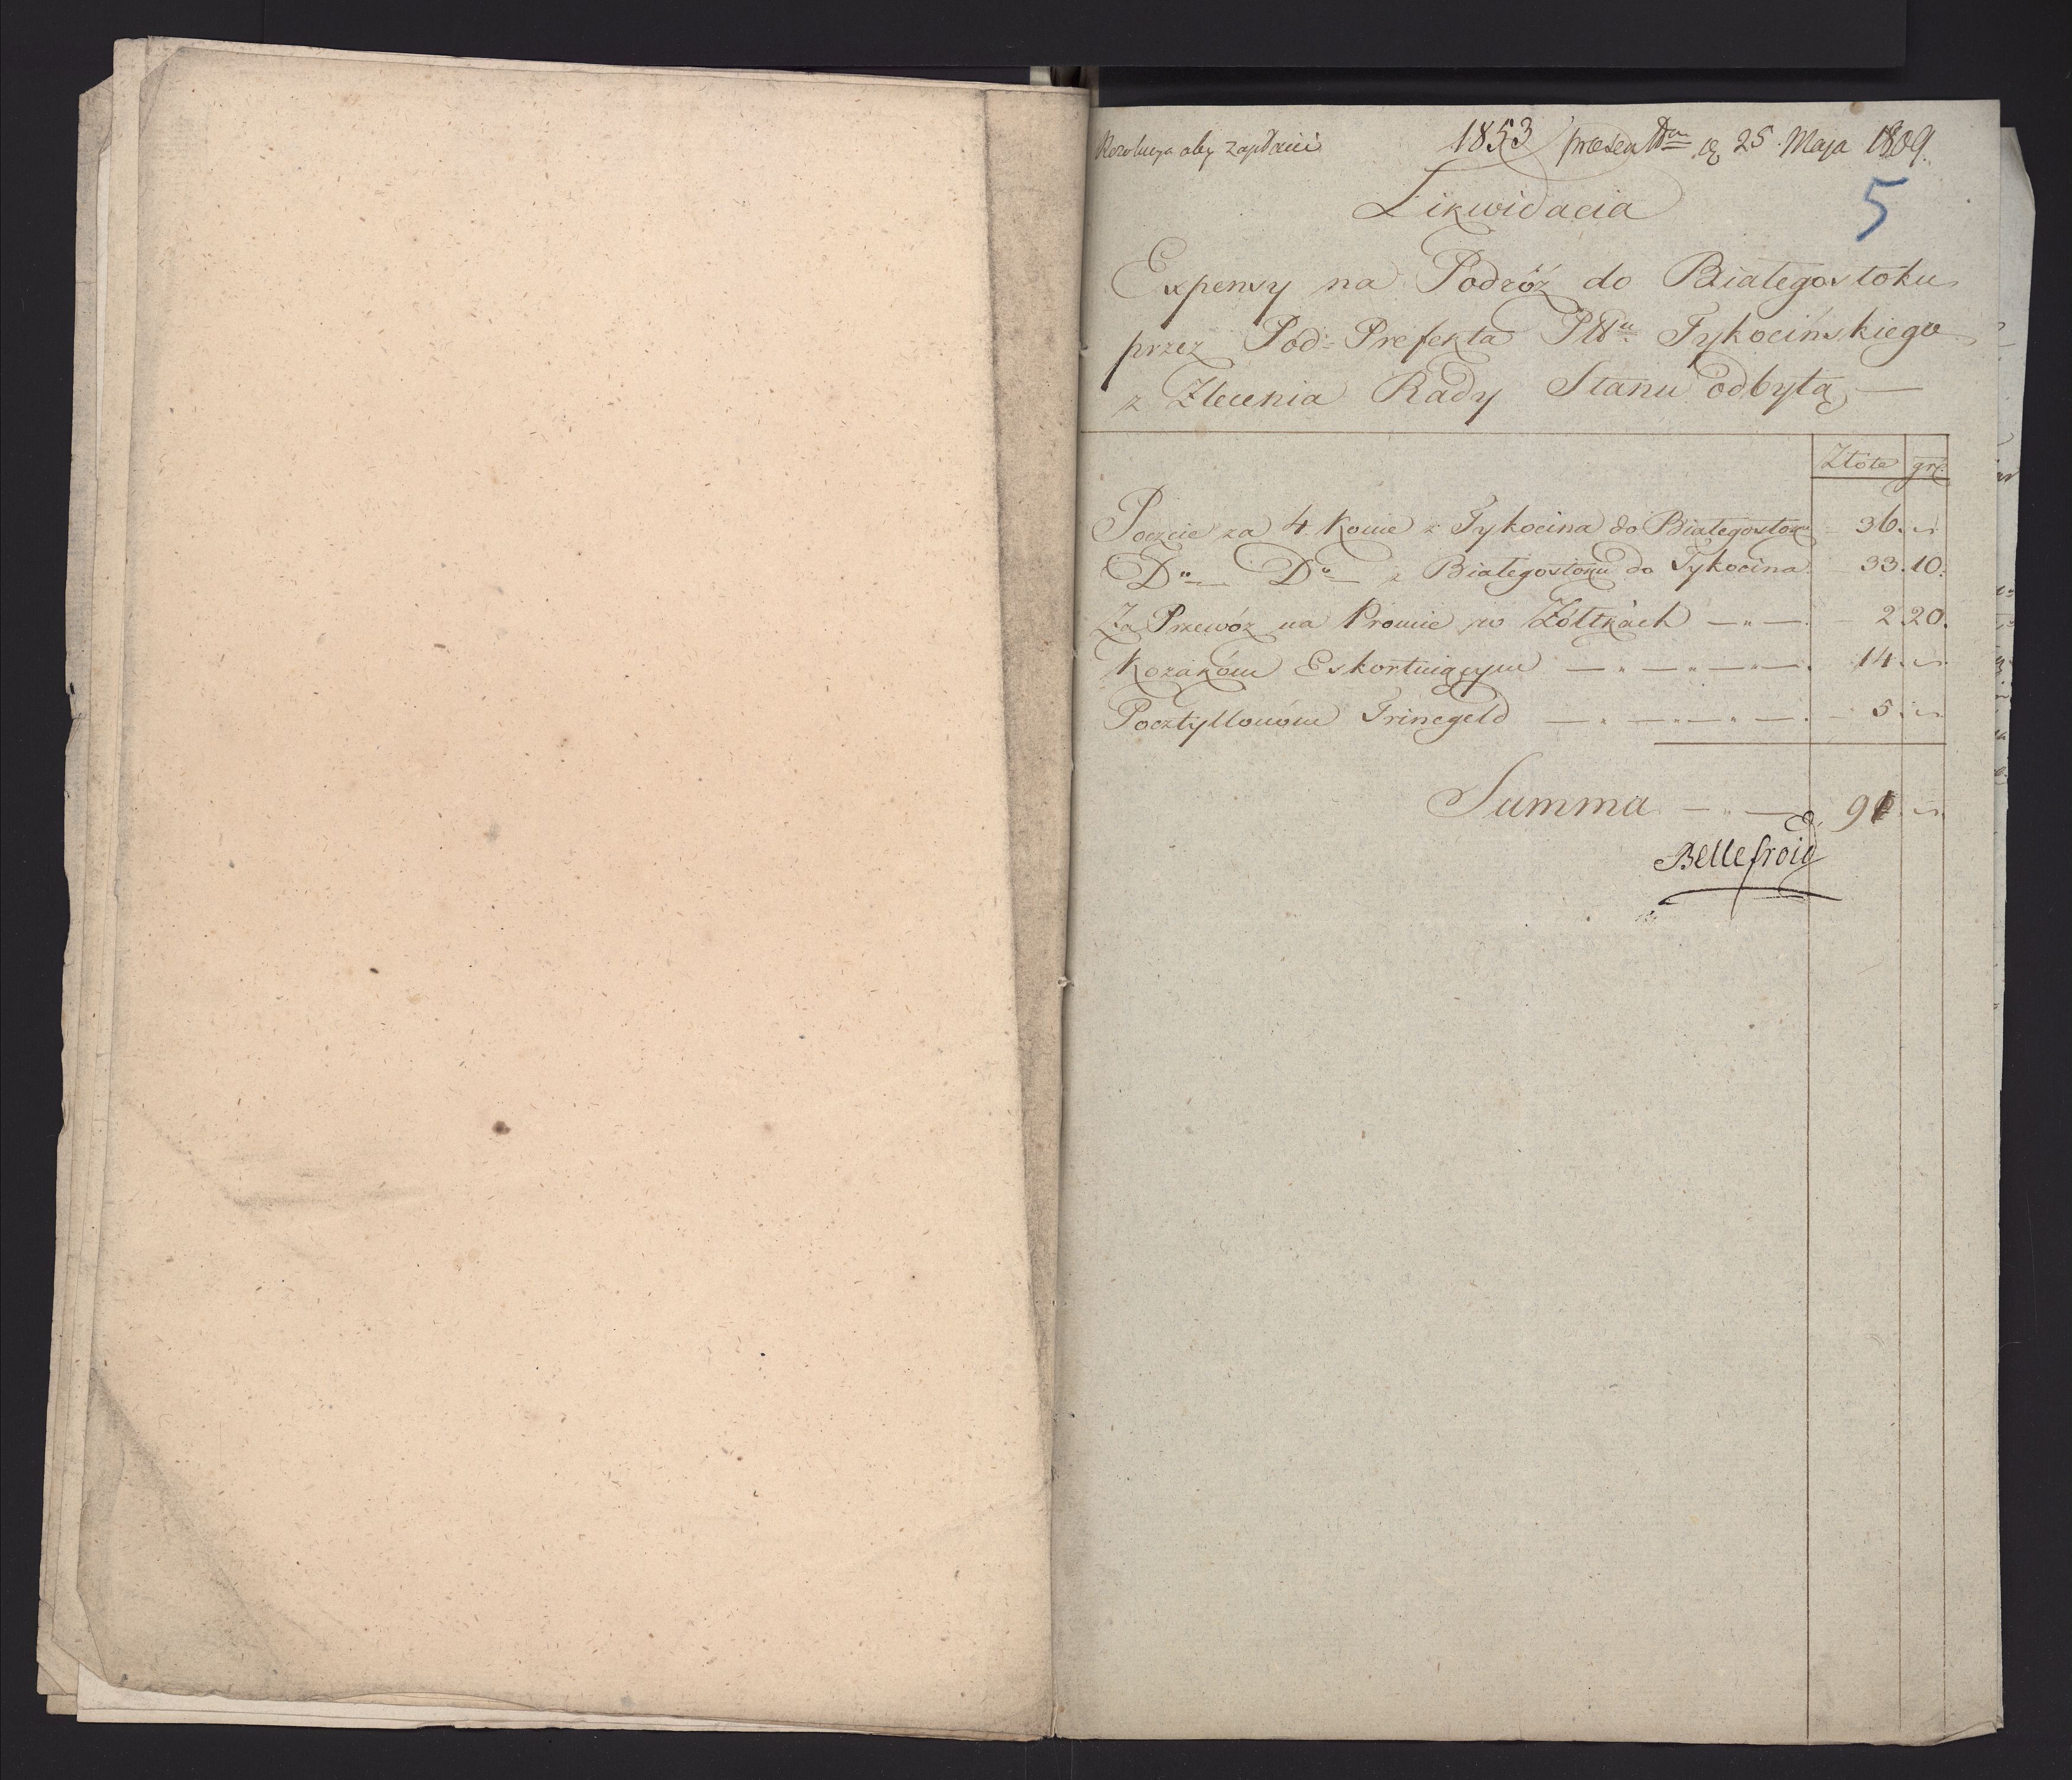 Rezolucya aby zapłacić 1853 praesentm d 25 Maja 1809.
5
Likwidacia
Expensy na Podróż do Białegostoku
przez Pod-Prefekta Pttu Tykocińskiego
z Zlecenia Rady Stanu odbytą —
Złote grE.
Poczcie za 4. Konie z Tykocina do Białegostoku 36. „
Do Do z Białegostoku do Tykocina 33. 10.
Za Przewóz na Promie w Żółtkach — „ — 2 20.
Kozaków Eskortuiącym — „ — „ — 14. „
Pocztyllonów Trinegeld — „ — „ — 5. „
Summa — „ — 91. „
Bellefroid